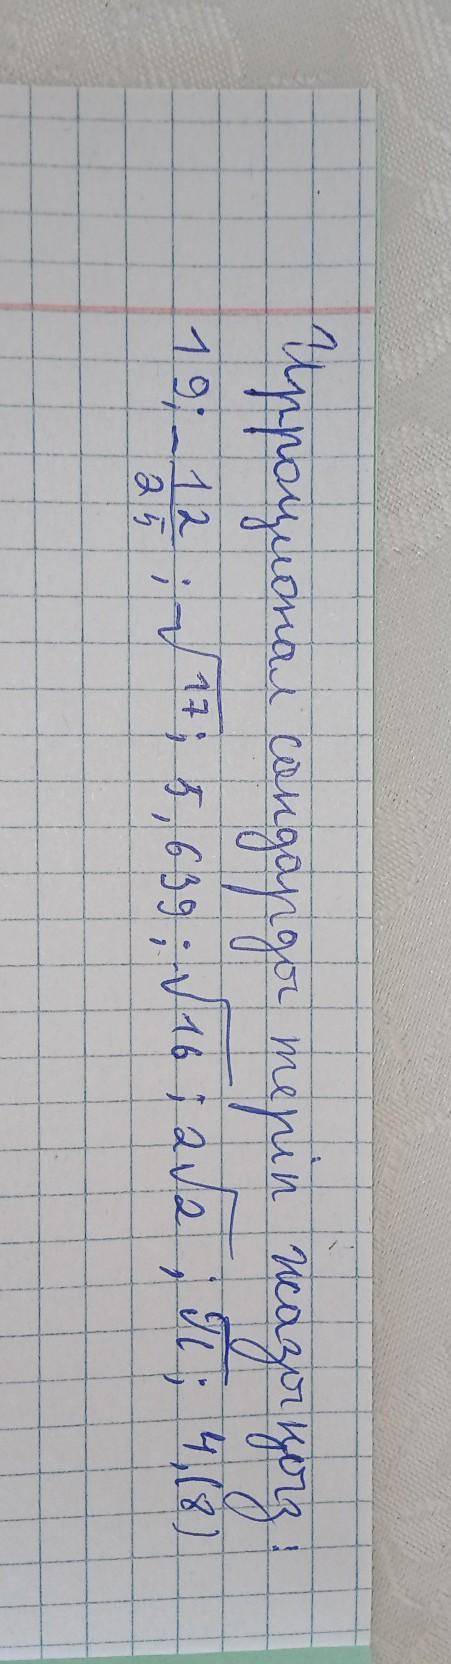 Иррационал сандарды теріп жазыңыз:
19; -12/25; -√17; 5,639; √16; 2√2; π; 4,(8)